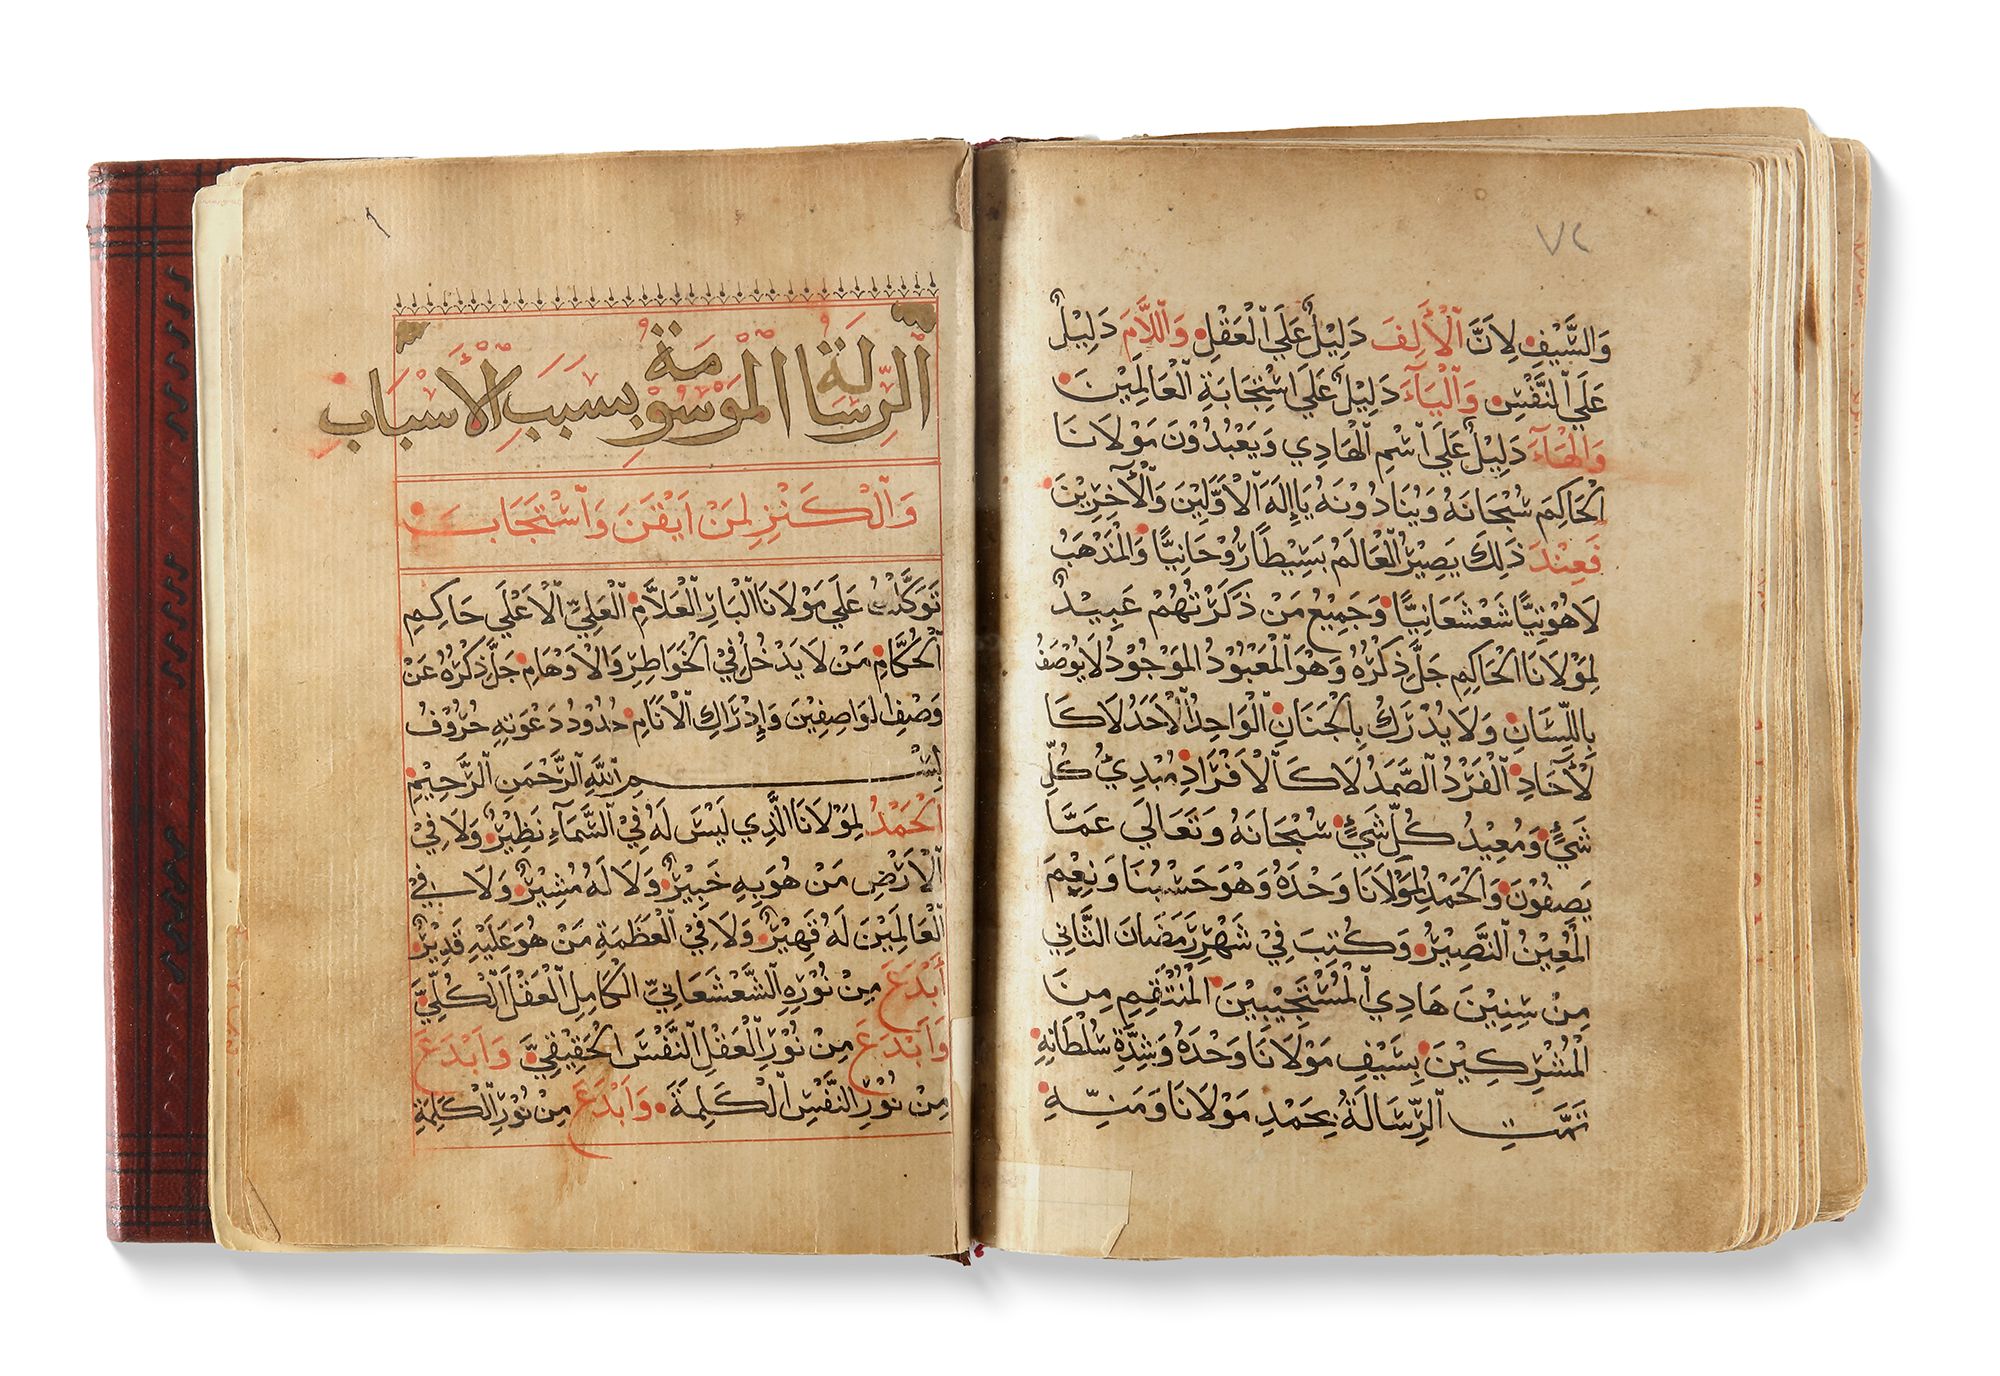 ٧٢
وَالسَّيْفِ لِأَنَّ الْأَلِفَ دَلِيْلٌ عَلَى الْعَقْلِ وَاللَّامَ دَلِيْلٌ
عَلَى النَّفْسِ وَالْيَآءَ دَلِيْلٌ عَلَى اسْتِجَابَةِ الْعَالَمِيْنَ
وَالْهَآءَ دَلِيْلٌ عَلَى اسْمِ الْهَادِي وَيَعْبُدُوْنَ مَوْلَانَا
الْحَاكِمَ سُبْحَانَهُ وَيُنَادُوْنَهُ يَا إِلَهَ الْأَوَّلِيْنَ وَالْآخِرِيْنَ
فَعِنْدَ ذَلِكَ يَصِيْرُ الْعَالَمُ بَسِيْطًا رُوْحَانِيًّا وَالْمَذْهَبُ
لَاهُوْتِيًّا شَعْشَعَانِيًّا وَجَمِيْعُ مَنْ ذَكَرْتُهُمْ عَبِيْدٌ
لِمَوْلَانَا الْحَاكِمِ جَلَّ ذِكْرُهُ وَهْوَ الْمَعْبُوْدُ الْمَوْجُوْدُ لَا يُوْصَفُ
بِاللِّسَانِ وَلَا يُدْرَكُ بِالْجَنَانِ الْوَاحِدُ الْأَحَدُ لَا كَا
لْأَحَادِ الْفَرْدُ الصَّمَدُ لَا كَالْأَفْرَادِ مُبْدِئُ كُلِّ
شَيْءٍ وَمُعِيْدُ كُلِّ شَيْءٍ سُبْحَانَهُ وَتَعَالَى عَمَّا
يَصِفُوْنَ وَالْحَمْدُ لِمَوْلَانَا وَحْدَهُ وَهْوَ حَسْبُنَا وَنِعْمَ
الْمُعِيْنُ النَّصِيْرُ وَكُتِبَ فِيْ شَهْرِ رَمَضَانَ الثَّانِي
مِنْ سِنِيْنَ هَادِي الْمُسْتَجِيْبِيْنَ الْمُنْتَقِمِ مِنَ
الْمُشْرِكِيْنَ بِسَيْفِ مَوْلَانَا وَحْدَهُ وَشِدَّةِ سُلْطَانِهِ
تَمَّتِ الرِّسَالَةُ بِحَمْدِ مَوْلَانَا وَمَنِّهِ
الرِّسَالَةُ الْمَوْسُوْمَةُ بِسَبَبِ الْأَسْبَابِ
وَالْكَنْزِ لِمَنْ أَيْقَنَ وَاسْتَجَابَ
تَوَكَّلْتُ عَلَى مَوْلَانَا الْبَارِ الْعَلَّامِ الْعَلِيِّ الْأَعْلَى حَاكِمِ
الْحُكَّامِ مَنْ لَا يَدْخُلُ فِي الْخَوَاطِرِ وَالْأَوْهَامِ جَلَّ ذِكْرُهُ عَنْ
وَصْفِ الْوَاصِفِيْنَ وَإِدْرَاكِ الْأَنَامِ حُدُوْدُ دَعْوَتِهِ حُرُوْفُ
بِسْمِ اللهِ الرَّحْمَنِ الرَّحِيْمِ
الْحَمْدُ لِمَوْلَانَا الَّذِي لَيْسَ لَهُ فِي السَّمَآءِ نَظِيْرٌ وَلَا فِيْ
الْأَرْضِ مَنْ هُوَ بِهِ خَبِيْرٌ وَلَا لَهُ مُشِيْرٌ وَلَا فِيْ
الْعَالَمِيْنَ لَهُ قَهِيْرٌ وَلَا فِي الْعَظَمَةِ مَنْ هُوَ عَلَيْهِ قَدِيْرٌ
أَبْدَعَ مِنْ نُوْرِهِ الشَّعْشَعَانِيِّ الْكَامِلِ الْعَقْلَ الْكُلِّيَّ
وَأَبْدَعَ مِنْ نُوْرِ الْعَقْلِ النَّفْسَ الْحَقِيْقِيَّةَ وَأَبْدَعَ
مِنْ نُوْرِ النَّفْسِ الْكَلِمَةَ وَأَبْدَعَ مِنْ نُوْرِ الْكَلِمَةِ